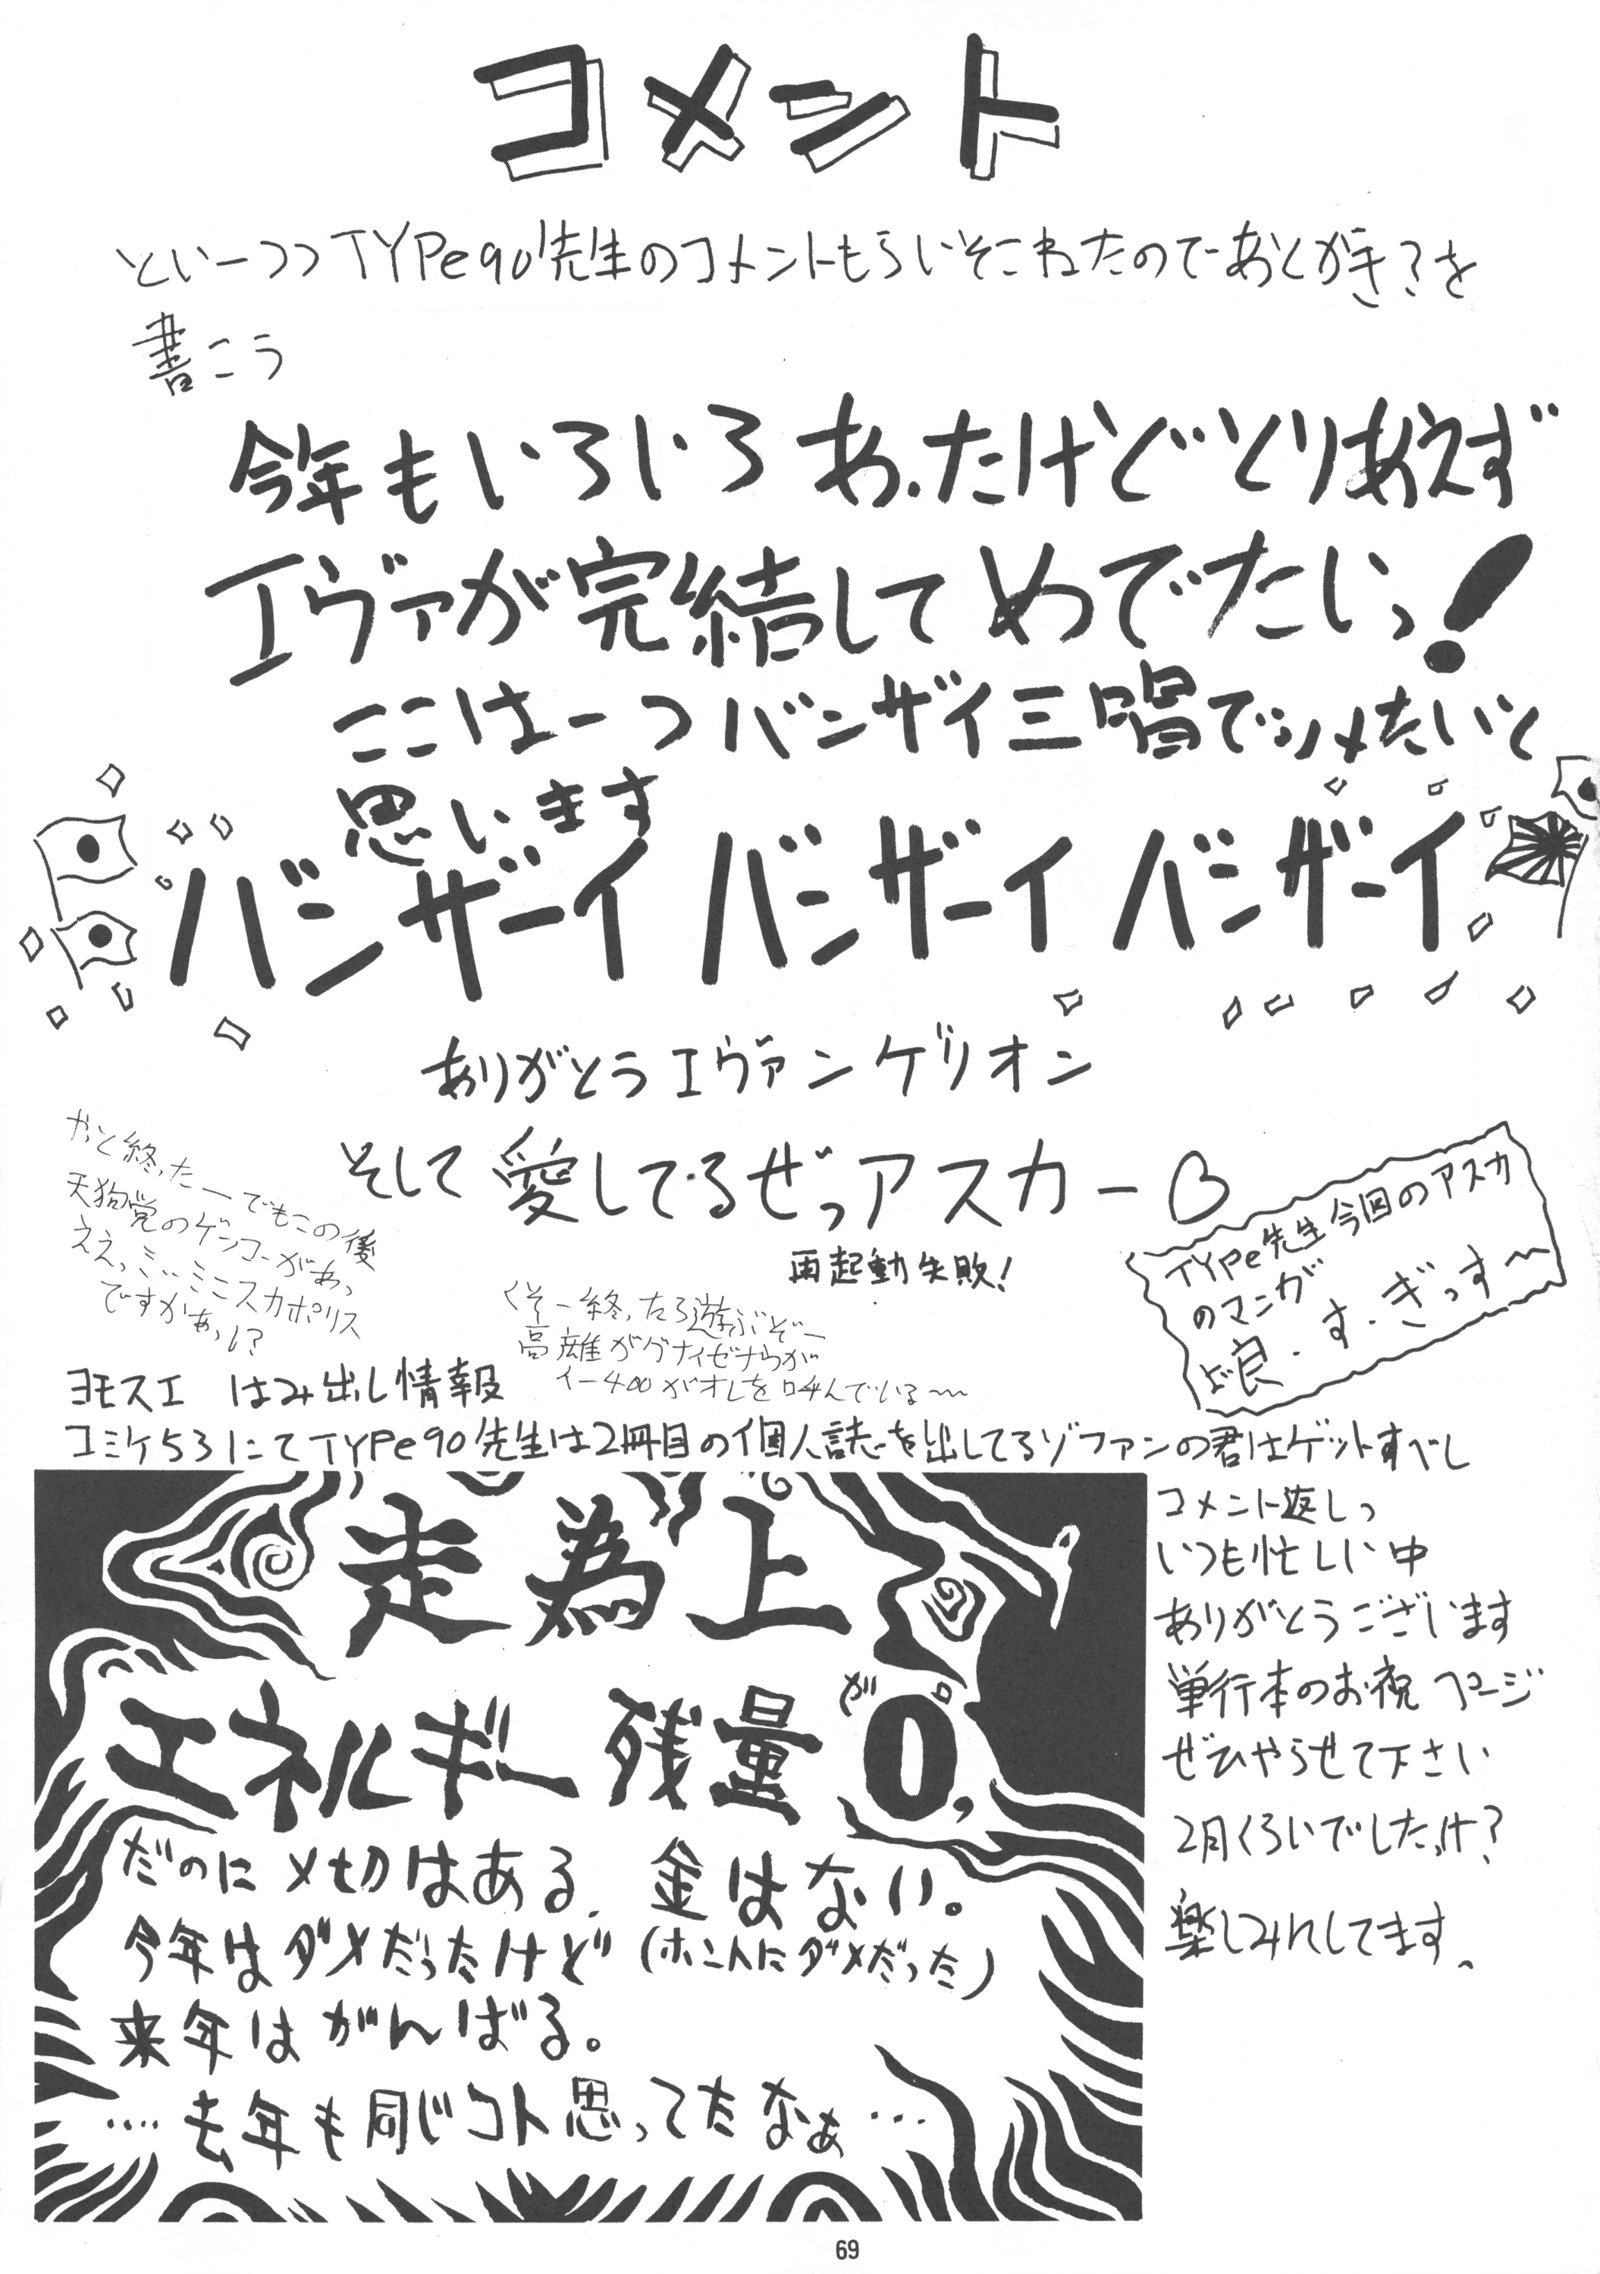 コメント
といーつつTYPe90先生のコメントもらいそこねたのであとがき?を
書こう
今年もいろいろあったけどとりあえず
エヴァが完結してめでたいっ!
ここは一つバンザイ三唱でシメたいと
思います
バンザーイ バンザーイ バンザーイ
ありがとうエヴァンゲリオン
そして愛してるぜっアスカー
再起動失敗!
やっと終ったーでもこの後
天狗党のゲンコーがあっ
ええっミニスカポリス
ですかぁっ!?
くそー終ったら遊ぶぞー
イー400がオレを叫んでいる〜
TYPe先生今回のアスカ
のマンガ
良すぎっす〜
ヨモスエ はみ出し情報
コミケ53にてTYPe90先生は2冊目の個人誌を出してるゾファンの君はゲットすべし
走為上
エネルギー残量が0。
だのに〆切はある。金はない。
今年はダメだったけど(ホントにダメだった)
来年はがんばる。
…去年も同じコト思ってたなぁ…
コメント返しっ
いつも忙しい中
ありがとうございます
単行本のお祝ページ
ぜひやらせて下さい
2月くらいでしたっけ?
楽しみにしてます、
69